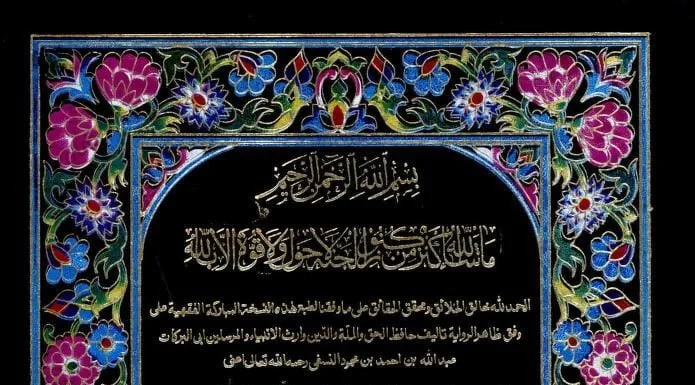 بسم الله الرحمن الرحيم
ما شاء الله كنز من كنوز الجنة لا حول ولا قوة إلا بالله
الحمد لله خالق الخلائق ومحقق الحقائق على ما وفقنا لطبع هذه النسخة المباركة الفقهية على
وفق ظاهر الرواية تأليف حافظ الحق والملة والدين وارث الانبياء والمرسلين ابى البركات
عبد الله بن احمد بن محمود النسفى رحمه الله تعالى اعنى